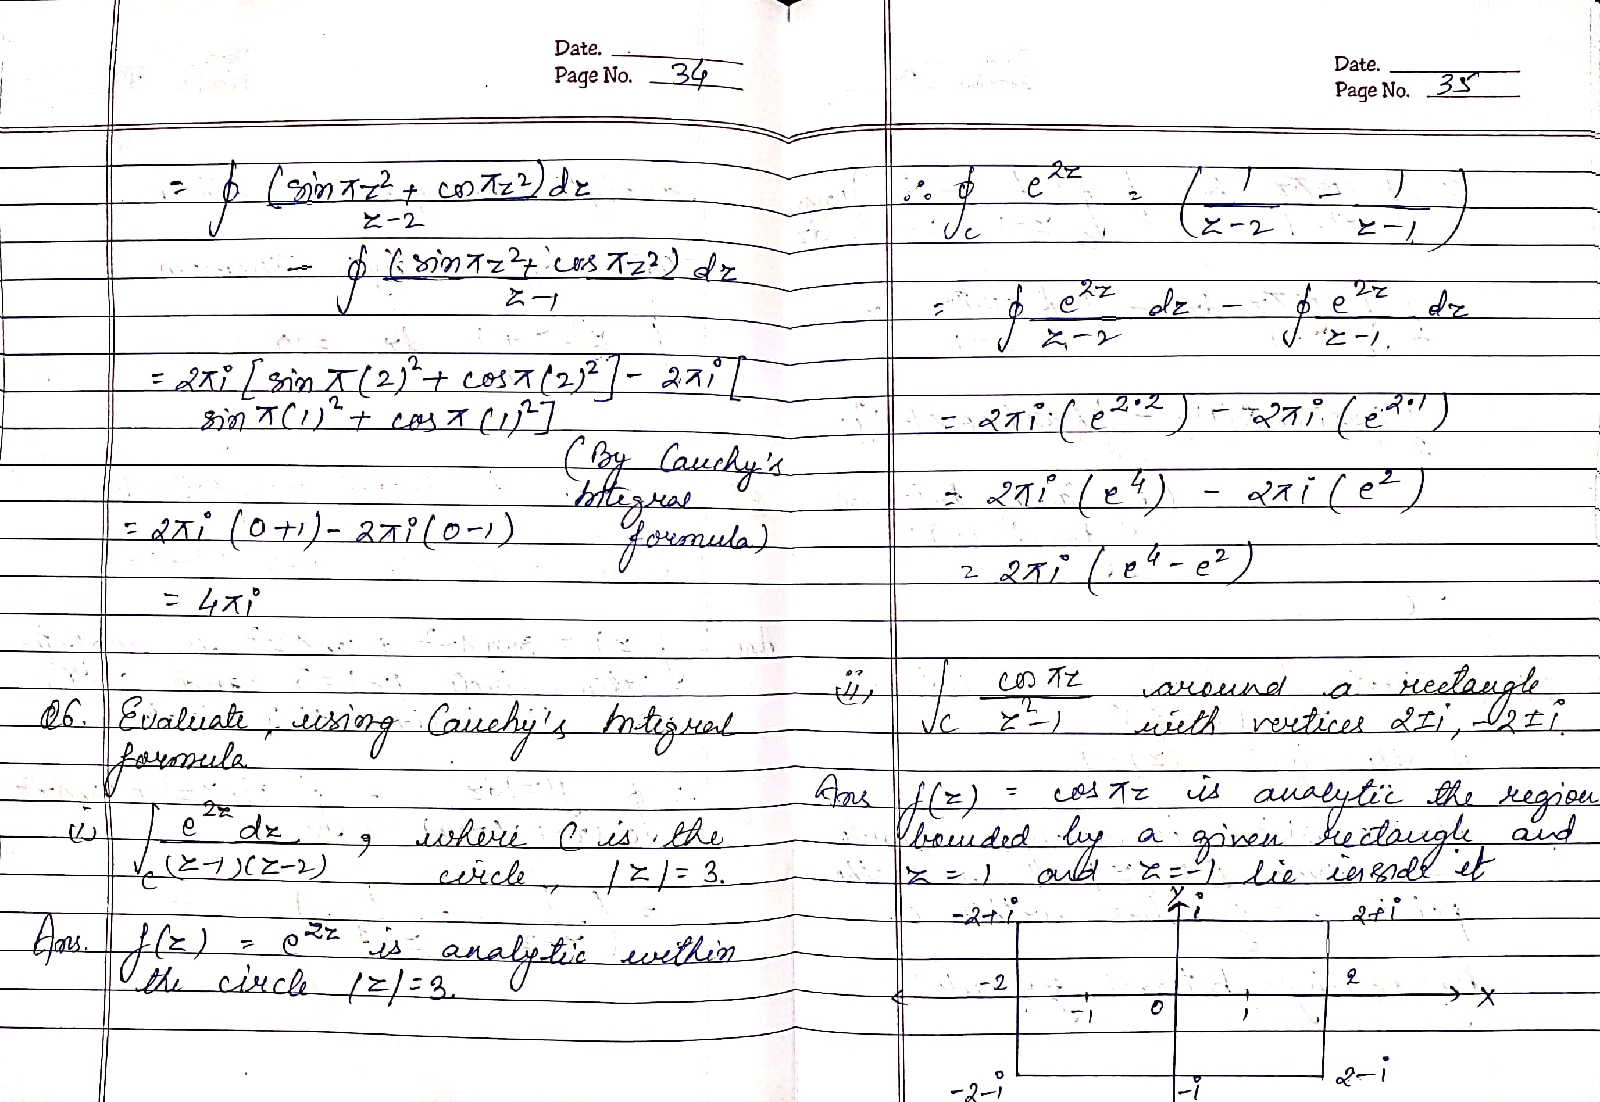 Date.
Page No. 34
= ∮ (sin πz² + cos πz²) dz
z-2
- ∮ (sin πz² + cos πz²) dz
z-1
= 2πi [sin π(2)² + cos π(2)²] - 2πi [
sin π(1)² + cos π(1)²]
(By Cauchy's
Integral
= 2πi (0+1) - 2πi (0-1) formula)
= 4πi
Q6. Evaluate, using Cauchy's Integral
formula
i) ∫c e^2z dz , where C is the
(z-1)(z-2) circle |z| = 3.
Ans. f(z) = e^2z is analytic within
the circle |z| = 3.
Date.
Page No. 35
∴ ∮c e^2z = (1/(z-2) - 1/(z-1))
= ∮ e^2z dz - ∮ e^2z dz
z-2 z-1.
= 2πi (e^2·2) - 2πi (e^2·1)
= 2πi (e^4) - 2πi (e^2)
= 2πi (e^4 - e^2)
ii, ∫c cos πz around a rectangle
z²-1 with vertices 2±i, -2±i.
Ans f(z) = cos πz is analytic the region
bounded by a given rectangle and
z = 1 and z = -1 lie inside it
-2+i Y i 2+i
-2 2
-1 0 1 X
-2-i -i 2-i